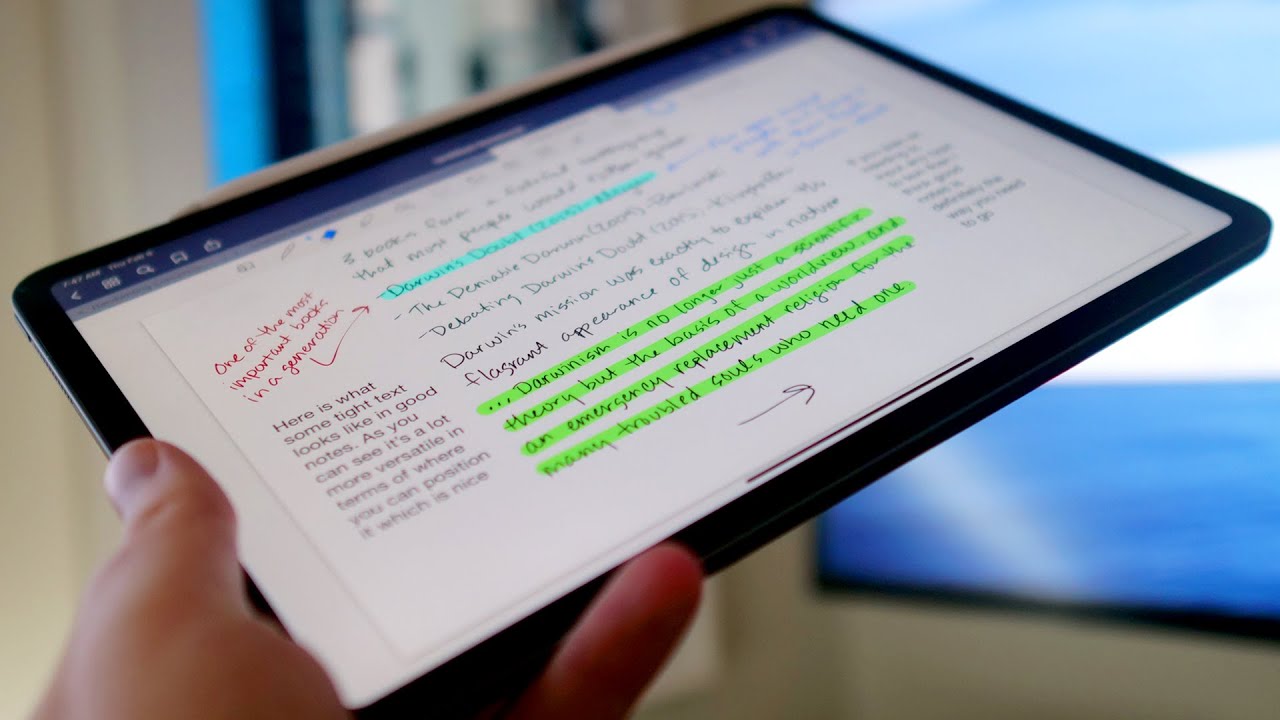 7:47 AM Thu Feb 6
3 books form a
that most people would
- Darwin's Doubt (2013)-Meyer
- The Deniable Darwin (2009)-Berlinski
- Debating Darwin's Doubt (2015), Klinghoffer
Darwin's mission was exactly to explain the
flagrant appearance of design in nature
... Darwinism is no longer just a scientific
theory but the basis of a worldview, and
an emergency replacement religion for the
many troubled souls who need one
One of the most
important books
in a generation
Here is what
some tight text
looks like in good
notes. As you
can see it's a lot
more versatile in
terms of where
you can position
it which is nice
If you
input any text
good
notes is
definitely the
way you need
to go